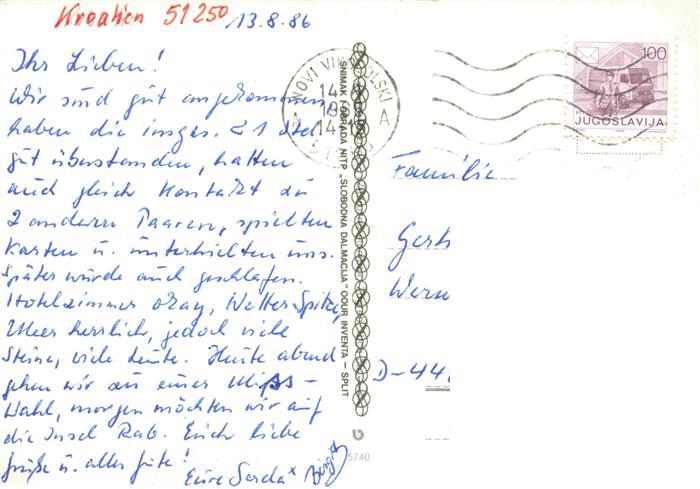 Kroatien 51250 13.8.86
Ihr Lieben!
Wir sind gut angekommen
haben die insges. 21 Std
gut überstanden, hatten
auch gleich Kontakt zu
2 anderen Paaren, spielten
Karten u. unterhielten uns.
Später wurde auch geschlafen.
Hotelzimmer okay, Wetter Spitze,
Meer herrlich, jedoch viele
Steine, viele Leute. Heute abend
gehen wir zu einer Miss-
Wahl, morgen möchten wir auf
die Insel Rab. Euch liebe
Grüße u. alles gute!
Eure Gerda + Birgit
NOVI VINODOLSKI
14
SNIMAK I OBRADA NITP „SLOBODNA DALMACIJA" OOUR INVENTA – SPLIT
5740
100
JUGOSLAVIJA
Familie
Gerh
Wern
D-44